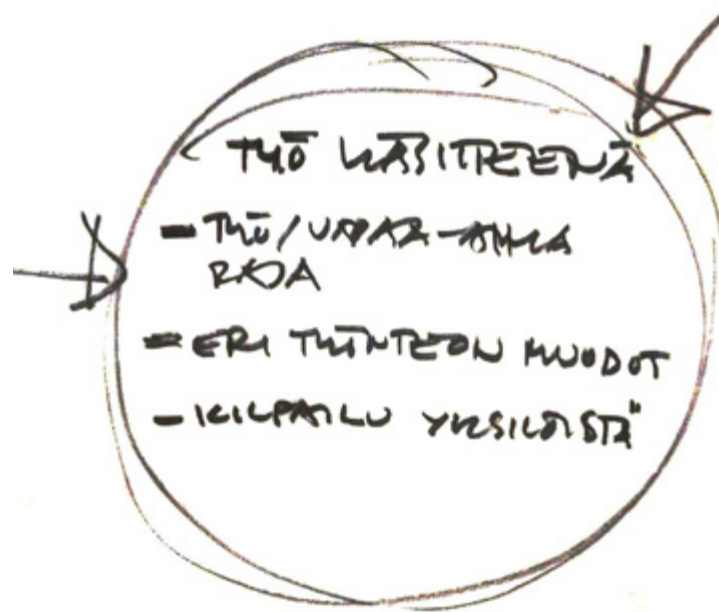 TYÖ KÄSITTEENÄ
- TYÖ/VAPAA-AIKA
RAJA
- ERI TYÖNTEON MUODOT
- KILPAILU YKSILÖISTÄ